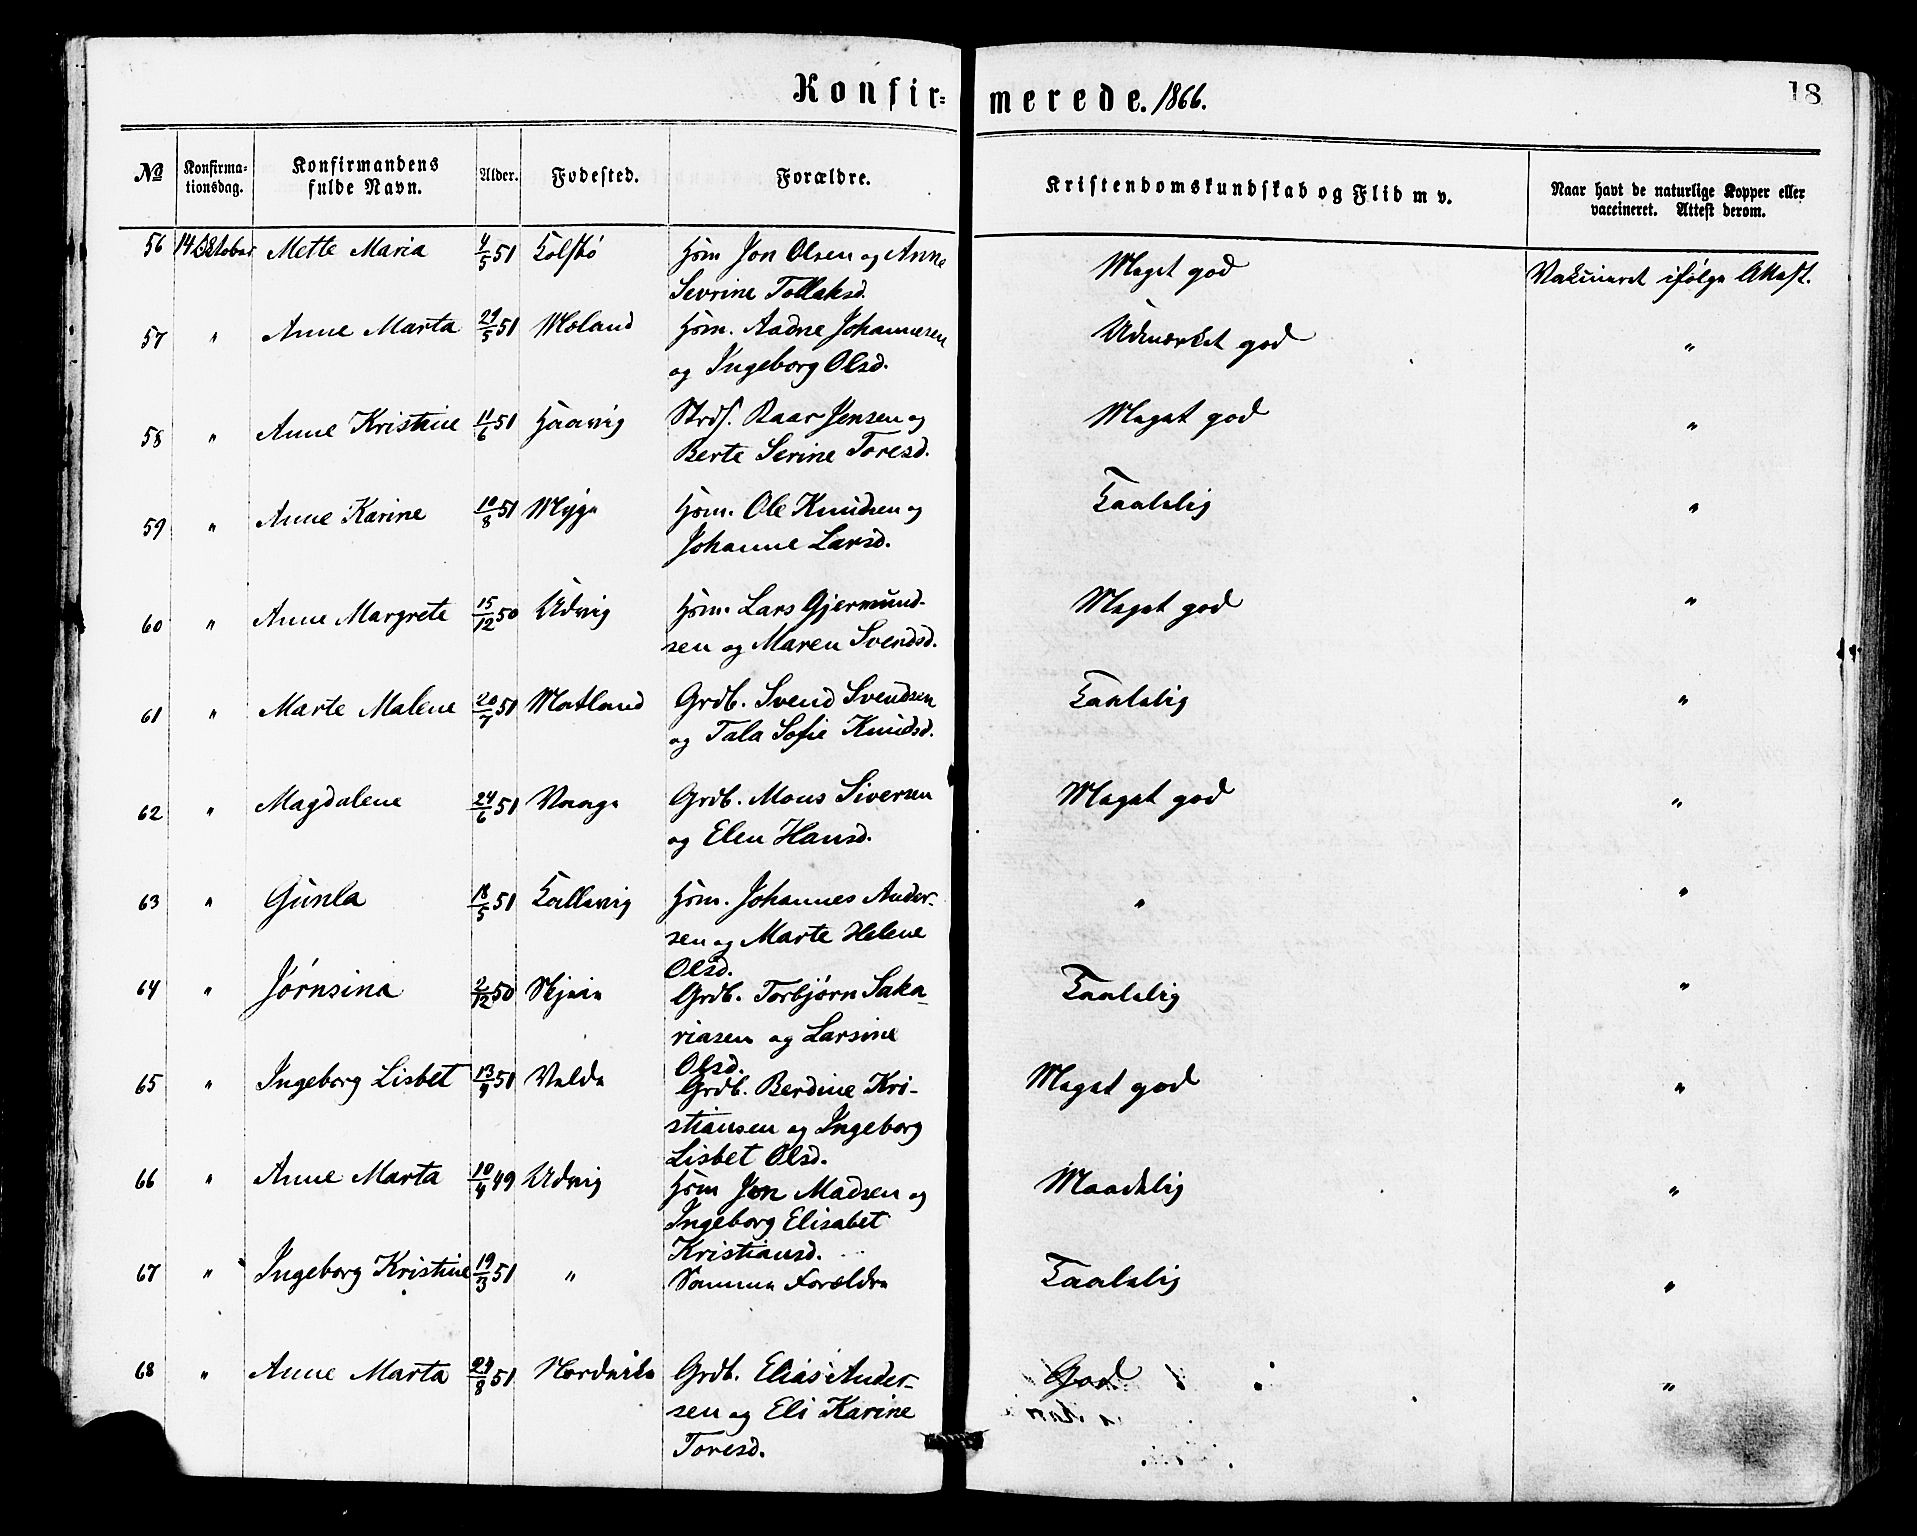 Konfir=
merede. 1866.
18
No
Konfirma-
tionsdag.
Konfirmandens
fulde Navn.
Alder.
Fødested.
Forældre.
Kristendomskundskab og Flid m v.
Naar havt de naturlige Kopper eller
vaccineret. Attest derom.
56 14 Oktober Mette Maria 4/5 51 Kolstø Hsm Jon Olsen og Anne
Sevrine Tollaksd.
Meget god
Vaksineret ifølge Attest.
57 " Anne Marta 29/5 51 Mæland Hsm. Aadne Johannesen
og Ingeborg Olsd.
Udmærket god
"
58 " Anne Kristine 11/6 51 Haavig Strds. Roar Jensen og
Berte Serine Toresd.
Meget god
"
59 " Anne Karine 10/8 51 Myge Hsm. Ole Knudsen og
Johanne Larsd.
Taalelig
"
60 " Anne Margrete 15/12 50 Udvig Hsm. Lars Gjermund-
sen og Maren Svendsd.
Meget god
"
61 " Marte Malene 20/7 51 Matland Grdb. Svend Svendsen
og Tala Sofie Knudsd.
Taalelig
"
62 " Magdalene 24/6 51 Vaage Grdb. Mons Siversen
og Elen Hansd.
Meget god
"
63 " Gunla 18/5 51 Kallevig Hsm. Johannes Ander-
sen og Marte Helene
Olsd.
"
"
64 " Jørnsina 2/12 50 Grdb. Torbjørn Saka-
riasen og Larsine
Olsd.
Taalelig
"
65 " Ingeborg Lisbet 13/4 51 Velde Grdb. Berdine Kri-
stiansen og Ingeborg
Lisbet Olsd.
Meget god
"
66 " Anne Marta 10/4 49 Udvig Hsm Jon Madsen og
Ingeborg Elisabet
Kristiansd.
Maadelig
"
67 " Ingeborg Kristine 19/3 51 " Samme Forældre
Taalelig
"
68 " Anne Marta 24/8 51 Nordvik Grdb. Elias Ander-
sen og Eli Karine
Toresd.
God
"